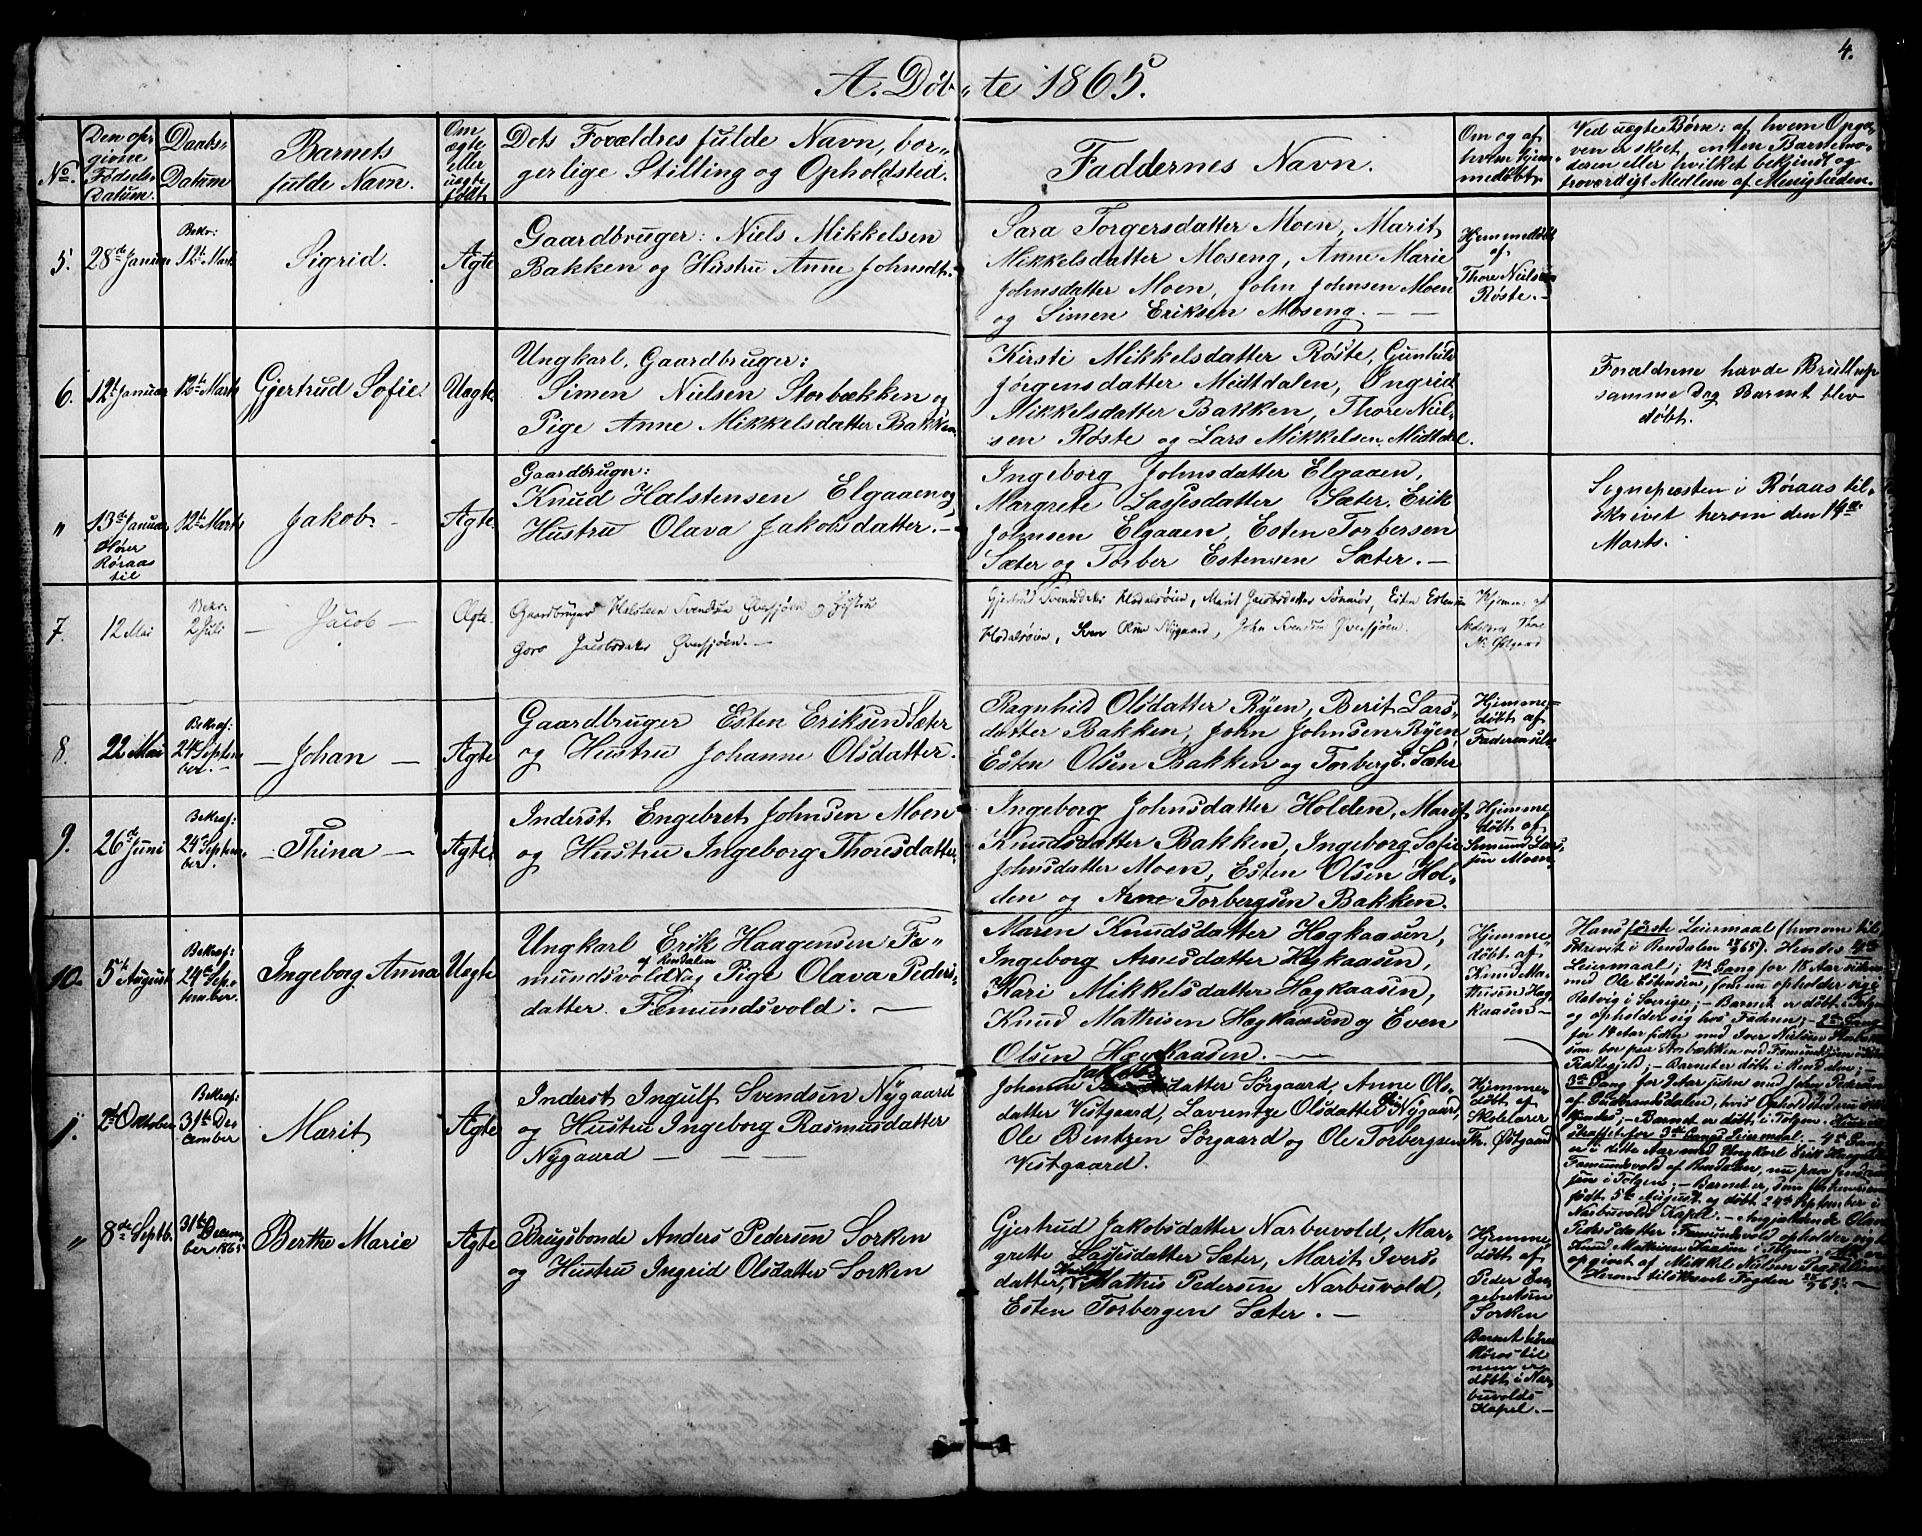 4.
A. Døbte 1865.
No.
Den op-
givne
Fødsels-
Datum.
Daabs-
Datum
Barnets
fulde Navn.
Om
ægte
eller
uægte
født.
Dets Forældres fulde Navn, bor-
gerlige Stilling og Opholdsted.
Faddernes Navn.
Om og af
hvem hjem-
medøbt.
Ved uægte Børn: af hvem Opga-
ven er skeet, enten Barnemo-
deren eller hvilket bekjendt og
troværdigt Medlem af Menigheden.
5.
28de Januar
Bekr:
12te Marts
Sigrid.
Ægte
Gaardbruger: Niels Mikkelsen
Bakken og Hustru Anne Johnsdt.
Sara Torgersdatter Moen, Marit
Mikkelsdatter Moseng, Anne Marie
Johnsdatter Moen, John Johnsen Moen
og Simen Eriksen Moseng. — —
Hjemmedøbt
af
Thore Nielsen
Røste. –
6.
12te Januar
12te Marts
Gjertrud Sofie.
Uægte
Ungkarl, Gaardbruger:
Simen Nielsen Storbækken og
Pige Anne Mikkelsdatter Bakken
Kirsti Mikkelsdatter Røste, Gunhild
Jørgensdatter Midtdalen, Ingrid
Mikkelsdatter Bakken, Thore Niel-
sen Røste og Lars Mikkelsen Midtdal.
Forældrene havde Bryllup
samme Dag Barnet blev
døbt.
"
13de Januar
Hører
Røraas
til
12te Marts
Jakob –
Ægte
Gaardbruger:
Knud Halstensen Elgaaen og
Hustru Olava Jakobsdatter. –
Ingeborg Johnsdatter Elgaaen,
Margrete Lassesdatter Sæter, Erik
Johnsen Elgaaen, Esten Torbersen
Sæter og Torber Estensen Sæter. –
Sognepræsten i Røraas til-
skrivet herom den 14de
Marts.
7.
12 Mai
Bekr:
2 Juli
– Jacob –
Ægte.
Gaardbruger Halsteen Svendsen Øversjøen og Hustru
Goro Jacobsdatter Øversjøen. –
Gjertrud Svendsdatter Hodalsøien, Marit Jacobsdatter Sømaas, Esten Estensen
Hodalsøien, Sven Olsen Nygaard, John Svendsen Øversjøen.
Hjemme af
Thore
Ns Østgaard
8.
22 Mai
Bekræf:
24de Septem-
ber. –
– Johan –
Ægte
Gaardbruger Esten Eriksen Sæter
og Hustru Johanne Olsdatter.
Ragnhild Olsdatter Ryen, Berit Lars-
datter Bakken, John Johnsen Ryen,
Esten Olsen Bakken og Torberg E. Sæter
Hjemme-
døbt af
Faderen selv
9.
26de Juni
Bekræf:
24de Septem-
ber.
– Thina –
Ægte
Inderst Engebret Johnsen Moen
og Hustru Ingeborg Thoresdatter
Ingeborg Johnsdatter Holden, Marit
Knudsdatter Bakken, Ingeborg Sofie
Johnsdatter Moen, Esten Olsen Hol-
den og Arne Torbergsen Bakken.
Hjemme-
døbt af
Semund Lars-
sen Moen
10.
5te August
Bekræf:
24de Sep-
tember.
Ingeborg Anna
Uægte
Ungkarl Erik Haagensen Fe-
mundsvold af Rendalen og Pige Olava Peders-
datter Fæmundsvold: –
Maren Knudsdatter Høgkaasen,
Ingeborg Arnesdatter Høgkaasen,
Kari Mikkelsdatter Høgkaasen,
Knud Mathisen Høgkaasen og Even
Olsen Høgkaasen. –
Hjemme-
døbt af
Knud Ma-
thisen Høg-
kaasen –
Hans første Leiermaal (hvorom til-
skrivet i Rendalen 65). Hendes 4de
Leiermaal; 1ste Gang for 18 Aar siden
med Ole Estensen, som nu opholder sig i
Retvig i Sverige; – Barnet er døbt i Tolgen
og opholder sig hos Faderen; – 2den Gang
for 14 Aar siden med Iver Nielsen Storbækken
som bor paa Storbækken ved Fæmundsjøen
– Barnet er døbt i Rendalen; –
3de Gang for 7 Aar siden med John Pedersen
af Gudbrandsdalen, hvis Opholdsted er
kjendes; – Barnet er døbt i Tolgen; Hun
straffet for 3de Gangs Leiermaal. – 4de Gang
er i dette Aar med Ungkarl Erik Haagensen
Fæmundsvold af Rendalen, nu paa
i Tolgen; – Barnet er, som forkommer
født 5te August og døbt 24de September i
Narbuvolds Kapel. – Angjældende Olava
Pedersdatter Fæmundsvold opholder sig hos
Knud Mathisen Kaasen i Tolgen.
opgivet af Mikkel Nielsen
Herom tilskrevet Fogden 65. –
1.
2de Oktober
Bekræf:
31te De-
cember
Marit
Ægte
Inderst Ingulf Svendsen Nygaard
og Hustru Ingeborg Rasmusdatter
Nygaard — — —
Johanne Jakobsdatter Sørgaard, Anne Ols-
datter Vestgaard, Lavrentze Olsdatter Nygaard,
Ole Bentzen Sørgaard og Ole Torbergsen
Vestgaard.
Hjemme-
døbt af
Skolelærer
Th. Østgaard
"
8de Septb.
31te Decem-
ber 1865
Berthe Marie
Ægte
Brugsbonde Anders Pedersen Sorken
og Hustru Ingrid Olsdatter Sorken
Gjertrud Jakobsdatter Narbuvold, Mar-
grette Lassesdatter Sæter, Marit Ivers-
datter, Mathis Pedersen Narbuvold,
Esten Torbergen Sæter. –
Hjemme-
døbt af
Peder En-
gebretsen
Sorken
Barnet hører
Røros til
men er
døbt i Nar-
buvolds
Kapel. –